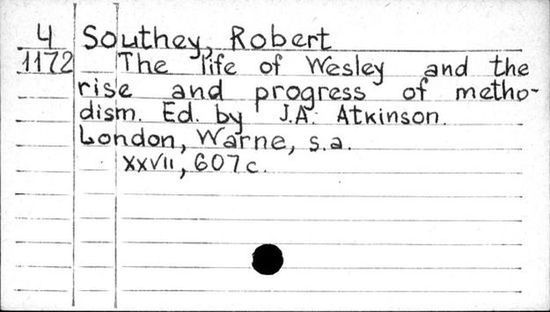 4 Southey, Robert
1172 The life of Wesley and the
rise and progress of metho-
dism. Ed. by J.A. Atkinson.
London, Warne, s.a.
XXVII, 607c.